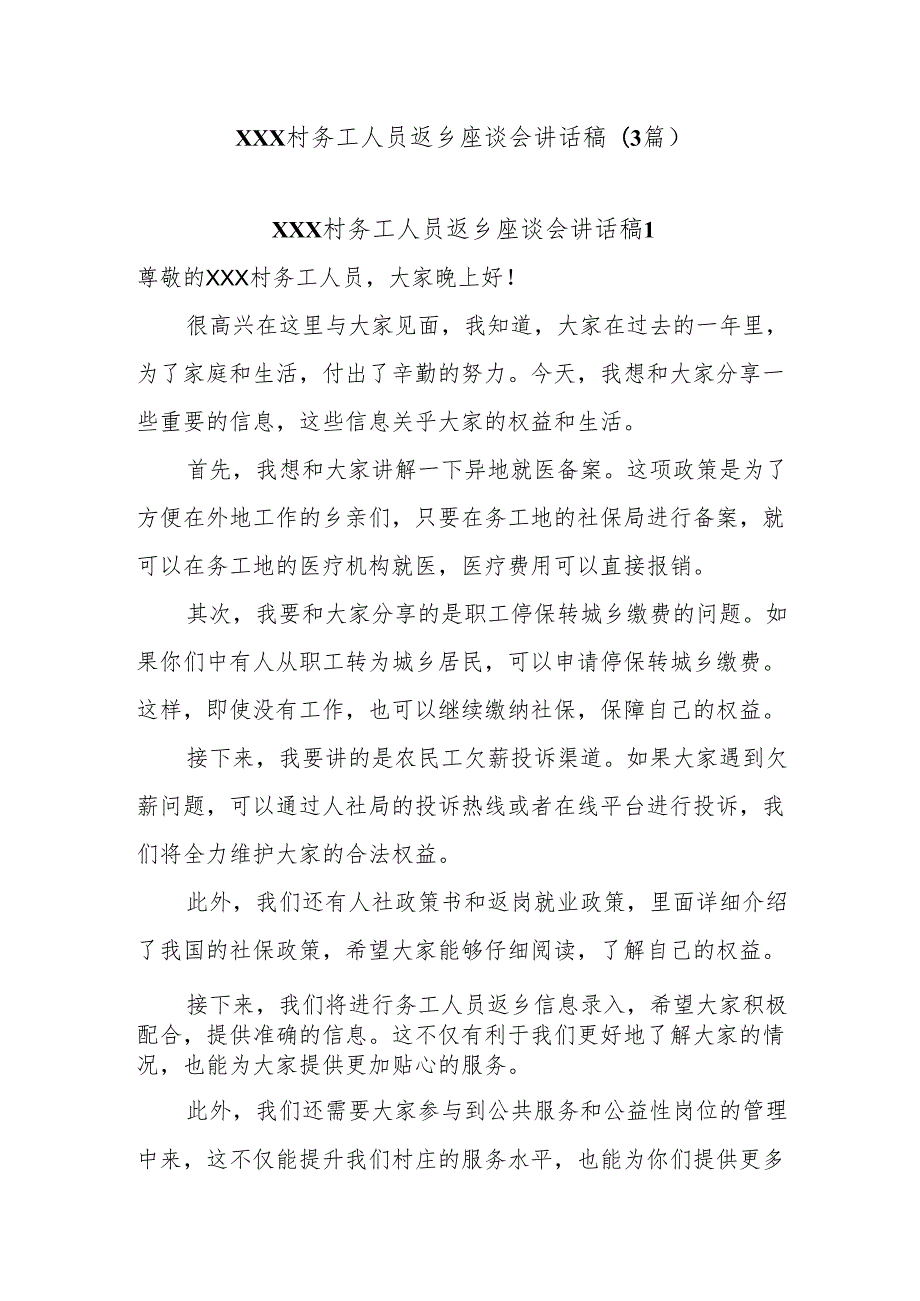 XXX村务工人员返乡座谈会讲话稿（3篇）
XXX村务工人员返乡座谈会讲话稿1
尊敬的XXX村务工人员，大家晚上好！
很高兴在这里与大家见面，我知道，大家在过去的一年里，
为了家庭和生活，付出了辛勤的努力。今天，我想和大家分享一
些重要的信息，这些信息关乎大家的权益和生活。
首先，我想和大家讲解一下异地就医备案。这项政策是为了
方便在外地工作的乡亲们，只要在务工地的社保局进行备案，就
可以在务工地的医疗机构就医，医疗费用可以直接报销。
其次，我要和大家分享的是职工停保转城乡缴费的问题。如
果你们中有人从职工转为城乡居民，可以申请停保转城乡缴费。
这样，即使没有工作，也可以继续缴纳社保，保障自己的权益。
接下来，我要讲的是农民工欠薪投诉渠道。如果大家遇到欠
薪问题，可以通过人社局的投诉热线或者在线平台进行投诉，我
们将全力维护大家的合法权益。
此外，我们还有人社政策书和返岗就业政策，里面详细介绍
了我国的社保政策，希望大家能够仔细阅读，了解自己的权益。
接下来，我们将进行务工人员返乡信息录入，希望大家积极
配合，提供准确的信息。这不仅有利于我们更好地了解大家的情
况，也能为大家提供更加贴心的服务。
此外，我们还需要大家参与到公共服务和公益性岗位的管理
中来，这不仅能提升我们村庄的服务水平，也能为你们提供更多